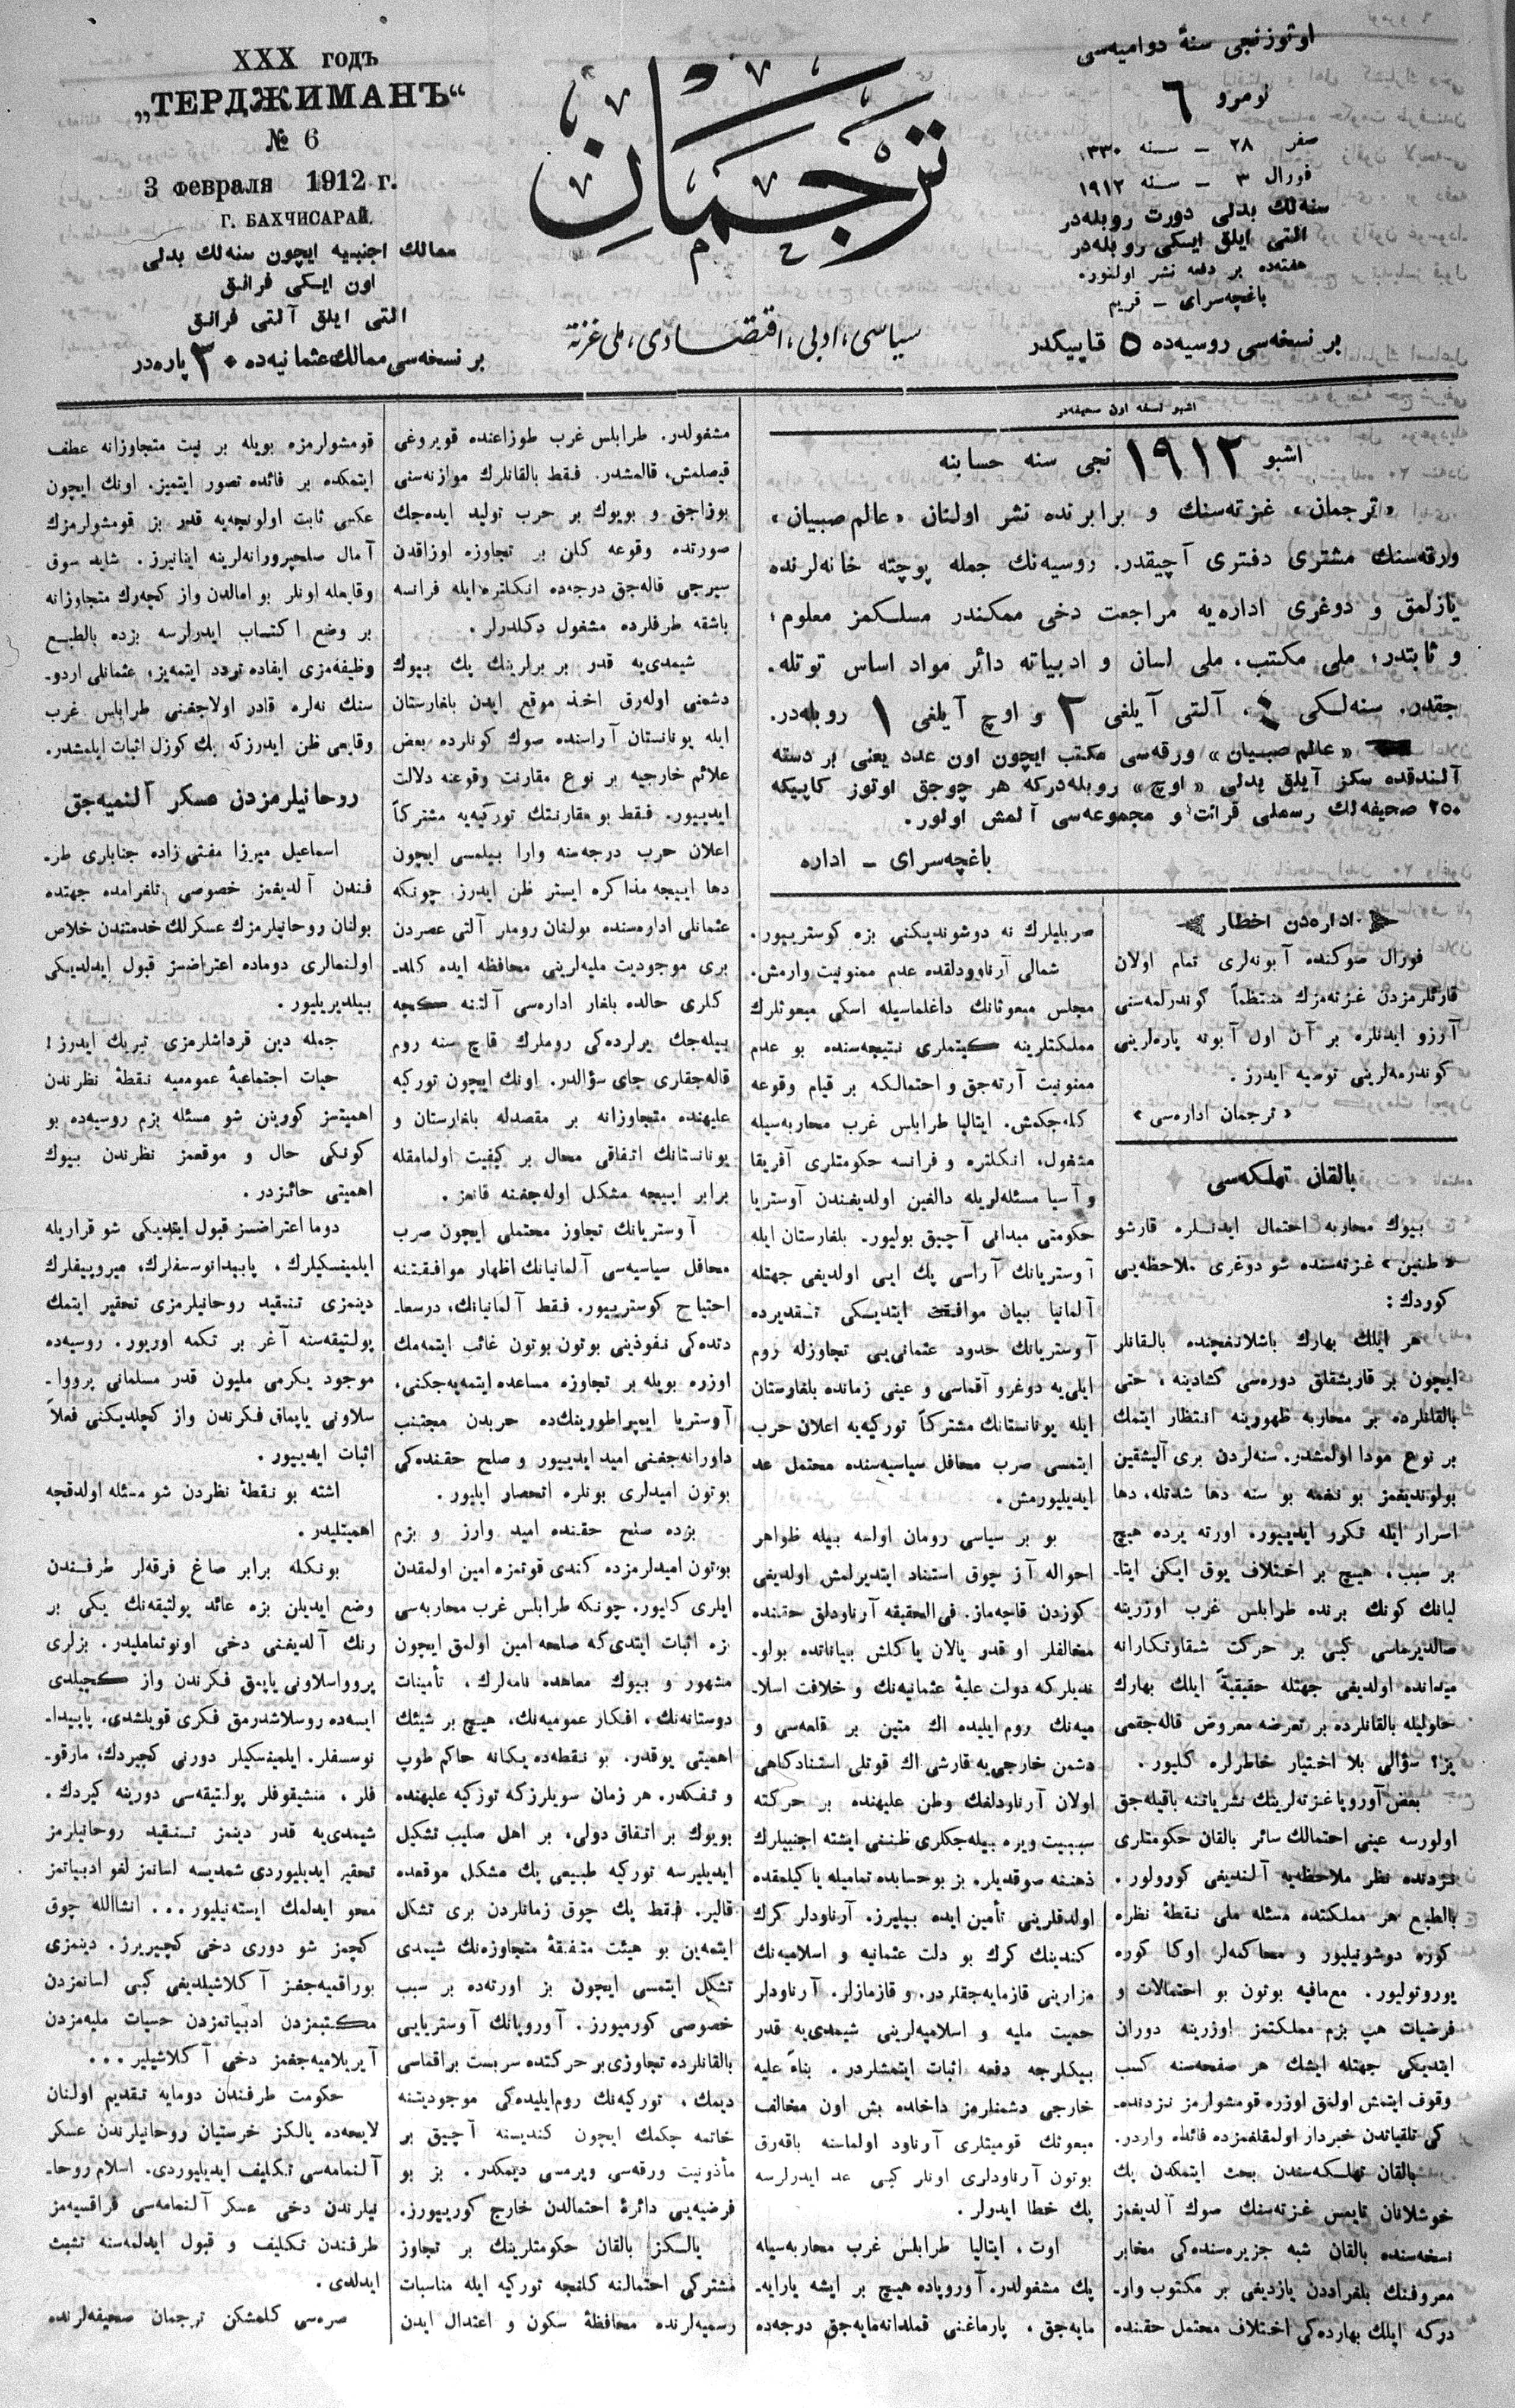 XXX годъ
„ТЕРДЖИМАНЪ“
№ 6
3 февраля 1912 г.
Г. БАХЧИСАРАЙ.
ممالك اجنبیه ایچون سنه‌لك بدلی
اون ایكی فرانق
التی ایلق آلتی فرانق
بر نسخه‌سی ممالك عثمانیه‌ده ٣٠ پاره‌در
ترجمان
سیاسی، ادبی، اقتصادی، ملی غزته
اوتوزنجی سنهٔ دوامیه‌سی
نومرو ٦
صفر ٢٨ – سنه ١٣٣٠
فورال ٣ – سنه ١٩١٢
سنه‌لك بدلی دورت روبله‌در
التی ایلق ایكی روبله‌در
هفته‌ده بر دفعه نشر اولنور.
باغچه‌سرای – قریم
بر نسخه‌سی روسیه‌ده ٥ قاپیكدر
اشبو نسخه اون صحیفه‌در
اشبو ١٩١٢ نجی سنه حسابنه
«ترجمان» غزته‌سنك و برابرنده نشر اولنان «عالم صبیان»
ورقه‌سنك مشتری دفتری آچیقدر. روسیه‌نك جمله پوچته خانه‌لرنده
یازلمق و دوغری اداره‌یه مراجعت دخی ممكندر مسلكمز معلوم؛
و ثابتدر؛ ملی مكتب، ملی لسان و ادبیاته دائر مواد اساس توتله‌ـ
جقدر. سنه‌لكی ٤، آلتی آیلغی ٢ و اوچ آیلغی ١ روبله‌در.
«عالم صبیان» ورقه‌سی مكتب ایچون اون عدد یعنی بر دسته
آلندقده سكز آیلق بدلی «اوچ» روبله‌دركه هر چوجق اوتوز كاپیكه
٢٥٠ صحیفه‌لك رسملی قرائت و مجموعه‌سی آلمش اولور.
باغچه‌سرای – اداره
اداره‌دن اخطار
فورال صوكنده آبونه‌لری تمام اولان
قارئلرمزدن غزته‌مزك منتظماً كوندرلمه‌سنی
آرزو ایدنلره بر آن اول آبونه پاره‌لرینی
كوندرمه‌لرینی توصیه ایدرز.
«ترجمان اداره‌سی»
بالقان تهلكه‌سی
بیوك محاربه احتمال ایدنلره قارشو
«طنین» غزته‌سنده شو دوغری ملاحظه‌یی
كوردك:
هر ایلك بهارك باشلانغچنده بالقانلر
ایچون بر قاریشقلق دوره‌سی كشادینه، حتی
بالقانلرده بر محاربه ظهورینه انتظار ایتمك
بر نوع مودا اولمشدر. سنه‌لردن بری آلیشقین
بولوندیغمز بو نغمه بو سنه دها شدتله، دها
اسرار ایله تكرر ایدییور. اورته یرده هیچ
بر سبب، هیچ بر اختلاف یوق ایكن ایتاـ
لیانك كونك برنده طرابلس غرب اوزرینه
صالدیرماسی كبی بر حركت شقاوتكارانه
میدانده اولدیغی جهتله حقیقةً ایلك بهارك
حلولیله بالقانلرده بر تعرضه معروض قاله‌جقمی
یز؟ سؤالی بلا اختیار خاطرلره كلیور.
بعض آوروپا غزته‌لرینك نشریاتنه باقیله‌جق
اولورسه عینی احتمالك سائر بالقان حكومتلری
نزدنده نظر ملاحظه‌یه آلندیغی كورولور.
بالطبع هر مملكتده مسئله ملی نقطهٔ نظره
كوره دوشونیلیور و محاكمه‌لر اوكا كوره
یوروتولیور. مع‌مافیه بوتون بو احتمالات و
فرضیات هپ بزم مملكتمز اوزرینه دوران
ایتدیكی جهتله ایشك هر صفحه‌سنه كسب
وقوف ایتمش اولمق اوزره قومشولرمز نزدنده‌ـ
كی تلقیاتدن خبردار اولمقلغمزده فائده واردر.
بالقان تهلكه‌سندن بحث ایتمكدن پك
خوشلانان تایمس غزته‌سنك صوك آلدیغمز
نسخه‌سنده بالقان شبه جزیره‌سنده‌كی مخابر
معروفنك بلغراددن یازدیغی بر مكتوب وارـ
دركه ایلك بهارده‌كی اختلاف محتمل حقنده
صربلیلرك نه دوشوندیكنی بزه كوستریور.
شمالی آرناوودلقده عدم ممنونیت وارمش.
مجلس مبعوثانك داغلماسیله اسكی مبعوثلرك
مملكتلرینه كیتملری نتیجه‌سنده بو عدم
ممنونیت آرته‌جق و احتمالكه بر قیام وقوعه
كله‌جكمش. ایتالیا طرابلس غرب محاربه‌سیله
مشغول، انكلتره و فرانسه حكومتلری آفریقا
و آسیا مسئله‌لریله دالغین اولدیغندن آوستریا
حكومتی میدانی آچیق بولیور. بلغارستان ایله
آوستریانك آراسی پك ایی اولدیغی جهتله
آلمانیا بیان موافقت ایتدیكی تقدیرده
آوستریانك حدود عثمانی‌یی تجاوزله روم
ایلی‌یه دوغرو آقماسی و عینی زمانده بلغارستان
ایله یونانستانك مشتركاً توركیه‌یه اعلان حرب
ایتمسی صرب محافل سیاسیه‌سنده محتمل عد
ایدیلیورمش.
بو بر سیاسی رومان اولسه بیله ظواهر
احواله آز چوق استناد ایتدیرلمش اولدیغی
كوزدن قاچه‌ماز. فی‌الحقیقه آرناودلق حقنده
مخالفلر او قدر یالان یاكلش بیاناتده بولوـ
ندیلركه دولت علیهٔ عثمانیه‌نك و خلافت اسلاـ
میه‌نك روم ایلیده اك متین بر قلعه‌سی و
دشمن خارجی‌یه قارشی اك قوتلی استنادكاهی
اولان آرناودلغك وطن علیهنده بر حركته
سببیت ویره بیله‌جكلری ظننی ایشته اجنبیلرك
ذهننه صوقدیلر. بز بو حسابده تمامیله یاكیلمقده
اولدقلرینی تأمین ایده بیلیرز. آرناودلر كرك
كندینك كرك بو دلت عثمانیه و اسلامیه‌نك
مزارینی قازمایه‌جقلردر. و قازمازلر. آرناودلر
حمیت ملیه و اسلامیه‌لرینی شیمدی‌یه قدر
بیكلرجه دفعه اثبات ایتمشلردر. بناءً علیه
خارجی دشمنلرمز داخلده بش اون مخالف
مبعوثك قومیتلری آرناود اولماسنه باقه‌رق
بوتون آرناودلری اونلر كبی عد ایدرلرسه
پك خطا ایدرلر.
اوت، ایتالیا طرابلس غرب محاربه‌سیله
پك مشغولدر. آوروپاده هیچ بر ایشه یارایه‌ـ
مایه‌جق، پارماغنی قملدانه‌مایه‌جق درجه‌ده
مشغولدر. طرابلس غرب طوزاغنده قویروغی
قیصلمش، قالمشدر. فقط بالقانلرك موازنه‌سنی
بوزاجق و بویوك بر حرب تولید ایده‌جك
صورتده وقوعه كلن بر تجاوزه اوزاقدن
سیرجی قاله‌جق درجه‌ده انكلتره ایله فرانسه
باشقه طرفلرده مشغول دكلدرلر.
شیمدی‌یه قدر بر برلرینك پك بیوك
دشمنی اوله‌رق اخذ موقع ایدن بلغارستان
ایله یونانستان آراسنده صوك كونلرده بعض
علائم خارجیه بر نوع مقارنت وقوعنه دلالت
ایدییور. فقط بو مقارنتك توركیه‌یه مشتركاً
اعلان حرب درجه‌سنه وارا بیلمسی ایچون
دها اییجه مذاكره ایستر ظن ایدرز. چونكه
عثمانلی اداره‌سنده بولنان روملر آلتی عصردن
بری موجودیت ملیه‌لرینی محافظه ایده كلدـ
كلری حالده بلغار اداره‌سی آلتنه كچه
بیله‌جك یرلرده‌كی روملرك قاچ سنه روم
قاله‌جقلری جای سؤالدر. اونك ایچون توركیه
علیهنده متجاوزانه بر مقصدله بلغارستان و
یونانستانك اتفاقی محال بر كیفیت اولمامقله
برابر اییجه مشكل اوله‌جغنه قانعز.
آوستریانك تجاوز محتملی ایچون صرب
محافل سیاسیه‌سی آلمانیانك اظهار موافقتنه
احتیاج كوسترییور. فقط آلمانیانك، درسعاـ
دتده‌كی نفوذینی بوتون بوتون غائب ایتمه‌مك
اوزره بویله بر تجاوزه مساعده ایتمه‌یه‌جكنی.
آوستریا ایمپراطورینك‌ده حربدن مجتنب
داورانه‌جغنی امید ایدییور و صلح حقنده‌كی
بوتون امیدلری بونلره انحصار ایلیور.
بزده صلح حقنده امید وارز و بزم
بوتون امیدلرمزده كندی قوتمزه امین اولمقدن
ایلری كلیور. چونكه طرابلس غرب محاربه‌سی
بزه اثبات ایتدی‌كه صلحه امین اولمق ایچون
مشهور و بیوك معاهده نامه‌لرك، تأمینات
دوستانه‌نك، افكار عمومیه‌نك، هیچ بر شیئك
اهمیتی یوقدر. بو نقطه‌ده یكانه حاكم طوپ
و تفكدر. هر زمان سویلرزكه توركیه علیهنده
بویوك بر اتفاق دولی، بر اهل صلیب تشكیل
ایدیلیرسه توركیه طبیعی پك مشكل موقعده
قالیر. فقط پك چوق زمانلردن بری تشكل
ایتمه‌ین بو هیئت متفقهٔ متجاوزه‌نك شیمدی
تشكل ایتمسی ایچون بز اورته‌ده بر سبب
خصوصی كورمیورز. آوروپانك آوستریایی
بالقانلرده تجاوزی بر حركتده سربست براقماسی
دیمك، توركیه‌نك روم‌ایلیده‌كی موجودیتنه
خاتمه چكمك ایچون كندیسنه آچیق بر
مأذونیت ورقه‌سی ویرمسی دیمكدر. بز بو
فرضیه‌یی دائرهٔ احتمالدن خارج كورییورز.
یالكز بالقان حكومتلرینك بر تجاوز
مشتركی احتمالنه كلنجه توركیه ایله مناسبات
رسمیه‌لرنده محافظهٔ سكون و اعتدال ایدن
قومشولرمزه بویله بر نیت متجاوزانه عطف
ایتمكده بر فائده تصور ایتمیز. اونك ایچون
عكسی ثابت اولونجه‌یه قدر بز قومشولرمزك
آمال صلحپرورانه‌لرینه اینانیرز. شاید سوق
وقایعله اونلر بو امالدن واز كچه‌رك متجاوزانه
بر وضع اكتساب ایدرلرسه بزده بالطبع
وظیفه‌مزی ایفاده تردد ایتمه‌یز؛ عثمانلی اردوـ
سنك نه‌لره قادر اولاجغنی طرابلس غرب
وقایعی ظن ایدرزكه پك كوزل اثبات ایلمشدر.
روحانیلرمزدن عسكر آلنمیه‌جق
اسماعیل میرزا مفتی زاده جنابلری طرـ
فندن آلدیغمز خصوصی تلغرامده جهتده
بولنان روحانیلرمزك عسكرلك خدمتندن خلاص
اولنمالری دوماده اعتراضسز قبول ایدلدیكی
بیلدیریلیور.
جمله دین قرداشلرمزی تبریك ایدرز!
حیات اجتماعیهٔ عمومیه نقطهٔ نظرندن
اهمیتسز كورینن شو مسئله بزم روسیه‌ده بو
كونكی حال و موقعمز نظرندن بیوك
اهمیتی حائزدر.
دوما اعتراضسز قبول ایتدیكی شو قراریله
ایلمینسكیلرك، پابیدانوسسفلرك، میروپیفلرك
دینمزی تنقید روحانیلرمزی تحقیر ایتمك
پولتیقه‌سنه آغر بر تكمه اوریور. روسیه‌ده
موجود یكرمی ملیون قدر مسلمانی پرووـ
سلاونی یاپماق فكرندن واز كچلدیكنی فعلاً
اثبات ایدییور.
اشته بو نقطهٔ نظردن شو مسئله اولدقچه
اهمیتلیدر.
بونكله برابر صاغ فرقه‌لر طرفندن
وضع ایدیلن بزه عائد پولتیقه‌نك یكی بر
رنك آلدیغنی دخی اونوتماملیدر. بزلری
پروواسلاونی یاپمق فكرندن واز كچیلدی
ایسه‌ده روسلاشدرمق فكری قویلشدی. پابیداـ
نوسسفلر. ایلمینسكیلر دورنی كچیردك، مارقوـ
فلر، منشیقوفلر پولتیقه‌سی دورینه كیردك.
شیمدی‌یه قدر دینمز تنقید روحانیلرمز
تحقیر ایدیلیوردی شمدیسه لسانمز لغو ادبیاتمز
محو ایدلمك ایسته‌نیلیور... انشاالله چوق
كچمز شو دوری دخی كچیریرز. دینمزی
بوراقمیه‌جغمز آكلاشیلدیغی كبی لسانمزدن
مكتبمزدن ادبیاتمزدن حسیات ملیه‌مزدن
آیریلامیه‌جغمز دخی آكلاشیلیر...
حكومت طرفندن دومایه تقدیم اولنان
لایحه‌ده یالكز خرستیان روحانیلرندن عسكر
آلنمامه‌سی تكلیف ایدیلیوردی. اسلام روحاـ
نیلرندن دخی عسكر آلنمامه‌سی فراقسیه‌مز
طرفندن تكلیف و قبول ایدلمه‌سنه تشبث
ایدلدی.
صره‌سی كلمشكن ترجمان صحیفه‌لرنده